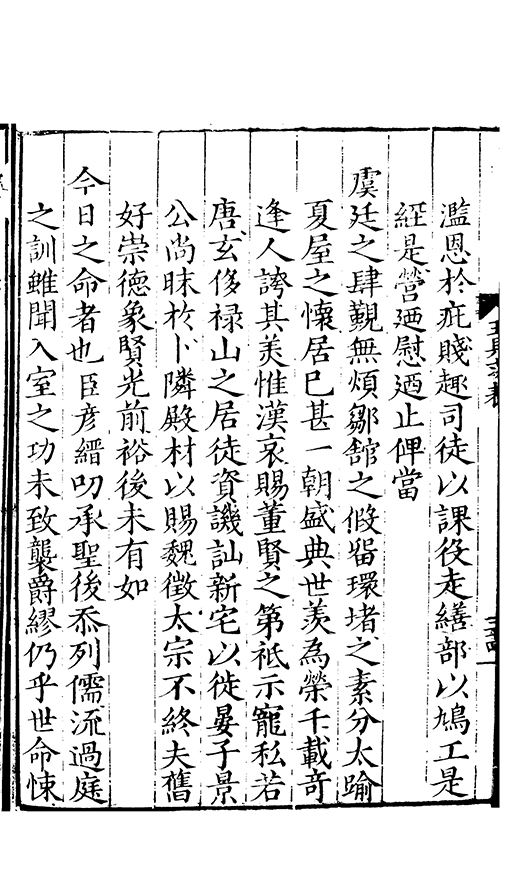 濫恩於疵賤趣司徒以課役走繕部以鳩工是
經是營廼慰廼止俾當
虞廷之肆覲無煩鄒舘之假畱環堵之素分太踰
夏屋之懷居已甚一朝盛典世羨為榮千載竒
逢人誇其美惟漢哀賜董賢之第祇示寵私若
唐玄侈禄山之居徒資譏訕新宅以徙晏子景
公尚昧於卜隣殿材以賜魏徵太宗不終夫舊
好崇德象賢光前裕後未有如
今日之命者也臣彦縉叨承聖後忝列儒流過庭
之訓雖聞入室之功未致襲爵繆仍乎世命悚